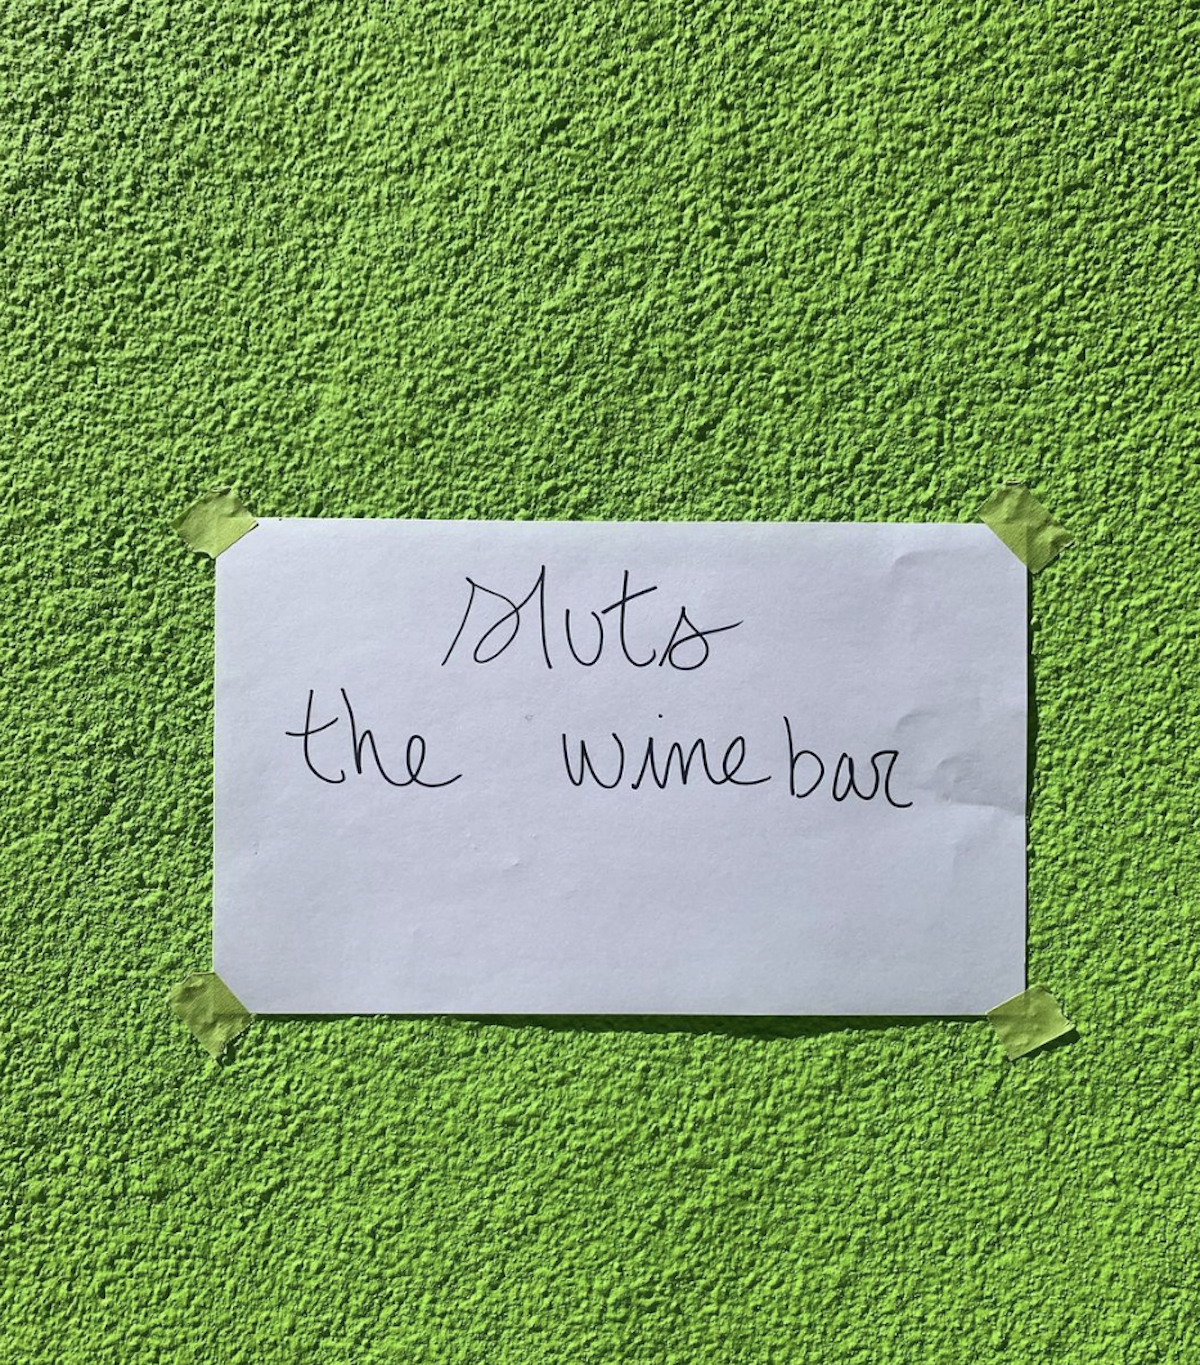 Sluts
the wine bar